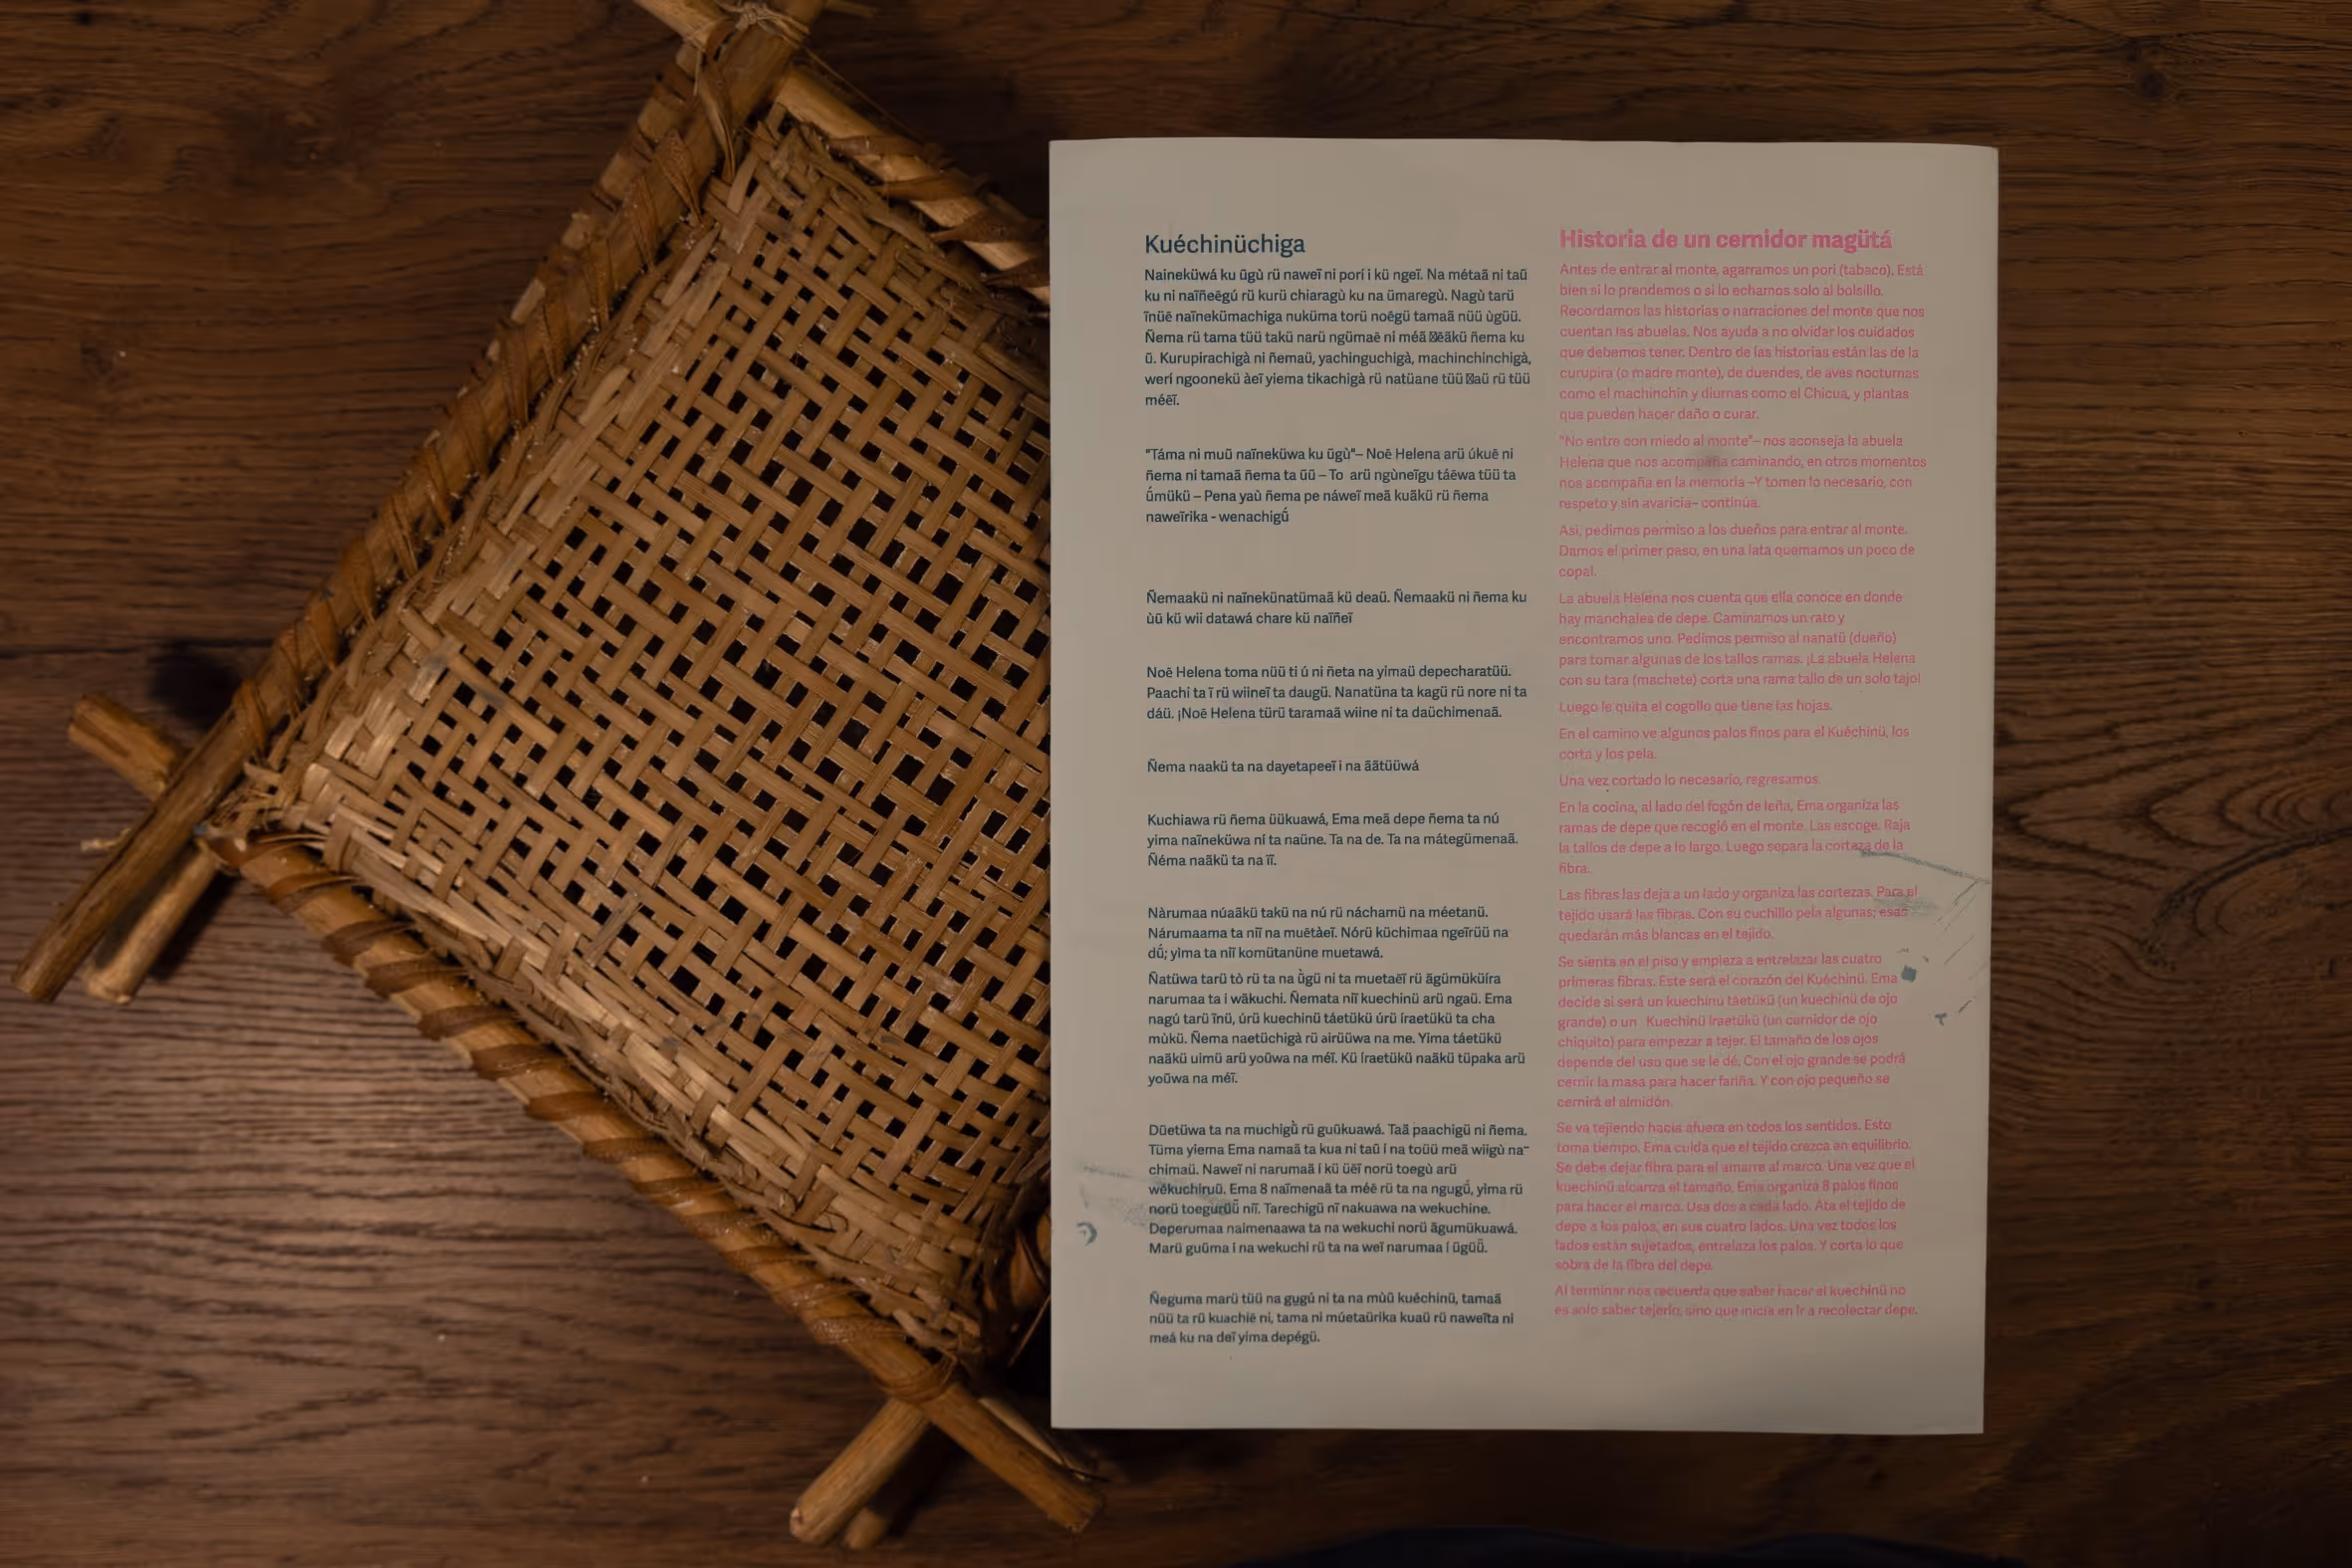 Kuéchinüchiga
Naineküwá ku ügù rü naweĩ ni porí i kü ngeĩ. Na métaã ni taü
ku ni naĩñeẽgú rü kurü chiaragù ku na ümaregù. Nagù tarü
ĩnüẽ naĩnekümachiga nuküma torü noẽgü tamaã nüü ùgüü.
Ñema rü tama tüü takü narü ngümaẽ ni méã ẽãkü ñema ku
ü. Kurupirachigà ni ñemaü, yachinguchigà, machinchinchigà,
werí ngoonekü àeĩ yiema tikachigà rü natüane tüü aü rü tüü
méẽĩ.
"Táma ni muü naĩneküwa ku ügù"– Noẽ Helena arü úkuẽ ni
ñema ni tamaã ñema ta üü – To arü ngùneĩgu táẽwa tüü ta
ǘmükü – Pena yaù ñema pe náweĩ meã kuãkü rü ñema
naweĩrika - wenachigǘ
Ñemaakü ni naĩnekünatümaã kü deaü. Ñemaakü ni ñema ku
ùü kü wii datawá chare kü naĩñeĩ
Noẽ Helena toma nüü ti ú ni ñeta na yimaü depecharatüü.
Paachi ta ĩ rü wiineĩ ta daugü. Nanatüna ta kagü rü nore ni ta
dáü. ¡Noẽ Helena türü taramaã wiine ni ta daüchimenaã.
Ñema naakü ta na dayetapeeĩ i na ããtüüwá
Kuchiawa rü ñema üükuawá, Ema meã depe ñema ta nú
yima naĩneküwa ni ta naüne. Ta na de. Ta na mátegümenaã.
Ñéma naãkü ta na ĩĩ.
Nàrumaa núaãkü takü na nú rü náchamü na méetanü.
Nárumaama ta niĩ na muẽtàeĩ. Nórü küchimaa ngeĩrüü na
dǘ; yìma ta niĩ komütanüne muetawá.
Ñatüwa tarü tò rü ta na ǜgü ni ta muetaẽĩ rü ãgümüküíra
narumaa ta i wãkuchi. Ñemata niĩ kuechinü arü ngaü. Ema
nagú tarü ĩnü, úrü kuechinü táetükü úrü íraetükü ta cha
mùkü. Ñema naetüchigà rü airüüwa na me. Yima táetükü
naãkü uimü arü yoüwa na méĩ. Kü íraetükü naãkü tüpaka arü
yoüwa na méĩ.
Düetüwa ta na muchigǜ rü guükuawá. Taã paachigü ni ñema.
Tüma yiema Ema namaã ta kua ni taü í na toüü meã wiigù na-
chimaü. Naweĩ ni narumaã í kü üẽĩ norü toegù arü
wẽkuchiruü. Ema 8 naĩmenaã ta méẽ rü ta na ngugǘ, yìma rü
norü toegürüǜ niĩ. Tarechigü nĩ nakuawa na wekuchine.
Deperumaa naimenaawa ta na wekuchi norü ãgumükuawá.
Marü guüma i na wekuchi rü ta na weĩ narumaa í ügüǜ.
Ñeguma marü tüü na gugú ni ta na mùü kuéchinü, tamaã
nüü ta rü kuachiẽ ni, tama ni múetaürika kuaü rü naweĩta ni
meá ku na deĩ yima depégü.
Historia de un cernidor magütá
Antes de entrar al monte, agarramos un porí (tabaco). Está
bien si lo prendemos o si lo echamos solo al bolsillo.
Recordamos las historias o narraciones del monte que nos
cuentan las abuelas. Nos ayuda a no olvidar los cuidados
que debemos tener. Dentro de las historias están las de la
curupira (o madre monte), de duendes, de aves nocturnas
como el machinchín y diurnas como el Chicua, y plantas
que pueden hacer daño o curar.
"No entre con miedo al monte"– nos aconseja la abuela
Helena que nos acompaña caminando, en otros momentos
nos acompaña en la memoria –Y tomen lo necesario, con
respeto y sin avaricia– continúa.
Así, pedimos permiso a los dueños para entrar al monte.
Damos el primer paso, en una lata quemamos un poco de
copal.
La abuela Helena nos cuenta que ella conoce en donde
hay manchales de depe. Caminamos un rato y
encontramos uno. Pedimos permiso al nanatü (dueño)
para tomar algunas de los tallos ramas. ¡La abuela Helena
con su tara (machete) corta una rama tallo de un solo tajo!
Luego le quita el cogollo que tiene las hojas.
En el camino ve algunos palos finos para el Kuéchinü, los
corta y los pela.
Una vez cortado lo necesario, regresamos.
En la cocina, al lado del fogón de leña, Ema organiza las
ramas de depe que recogió en el monte. Las escoge. Raja
la tallos de depe a lo largo. Luego separa la corteza de la
fibra.
Las fibras las deja a un lado y organiza las cortezas. Para el
tejido usará las fibras. Con su cuchillo pela algunas; esas
quedarán más blancas en el tejido.
Se sienta en el piso y empieza a entrelazar las cuatro
primeras fibras. Este será el corazón del Kuéchinü. Ema
decide si será un kuechinü táetükü (un kuechinü de ojo
grande) o un Kuechinü íraetükü (un cernidor de ojo
chiquito) para empezar a tejer. El tamaño de los ojos
depende del uso que se le dé. Con el ojo grande se podrá
cernir la masa para hacer fariña. Y con ojo pequeño se
cernirá el almidón.
Se va tejiendo hacia afuera en todos los sentidos. Esto
toma tiempo. Ema cuida que el tejido crezca en equilibrio.
Se debe dejar fibra para el amarre al marco. Una vez que el
kuechinü alcanza el tamaño, Ema organiza 8 palos finos
para hacer el marco. Usa dos a cada lado. Ata el tejido de
depe a los palos, en sus cuatro lados. Una vez todos los
lados están sujetados, entrelaza los palos. Y corta lo que
sobra de la fibra del depe.
Al terminar nos recuerda que saber hacer el kuechinü no
es solo saber tejerlo, sino que inicia en ir a recolectar depe.